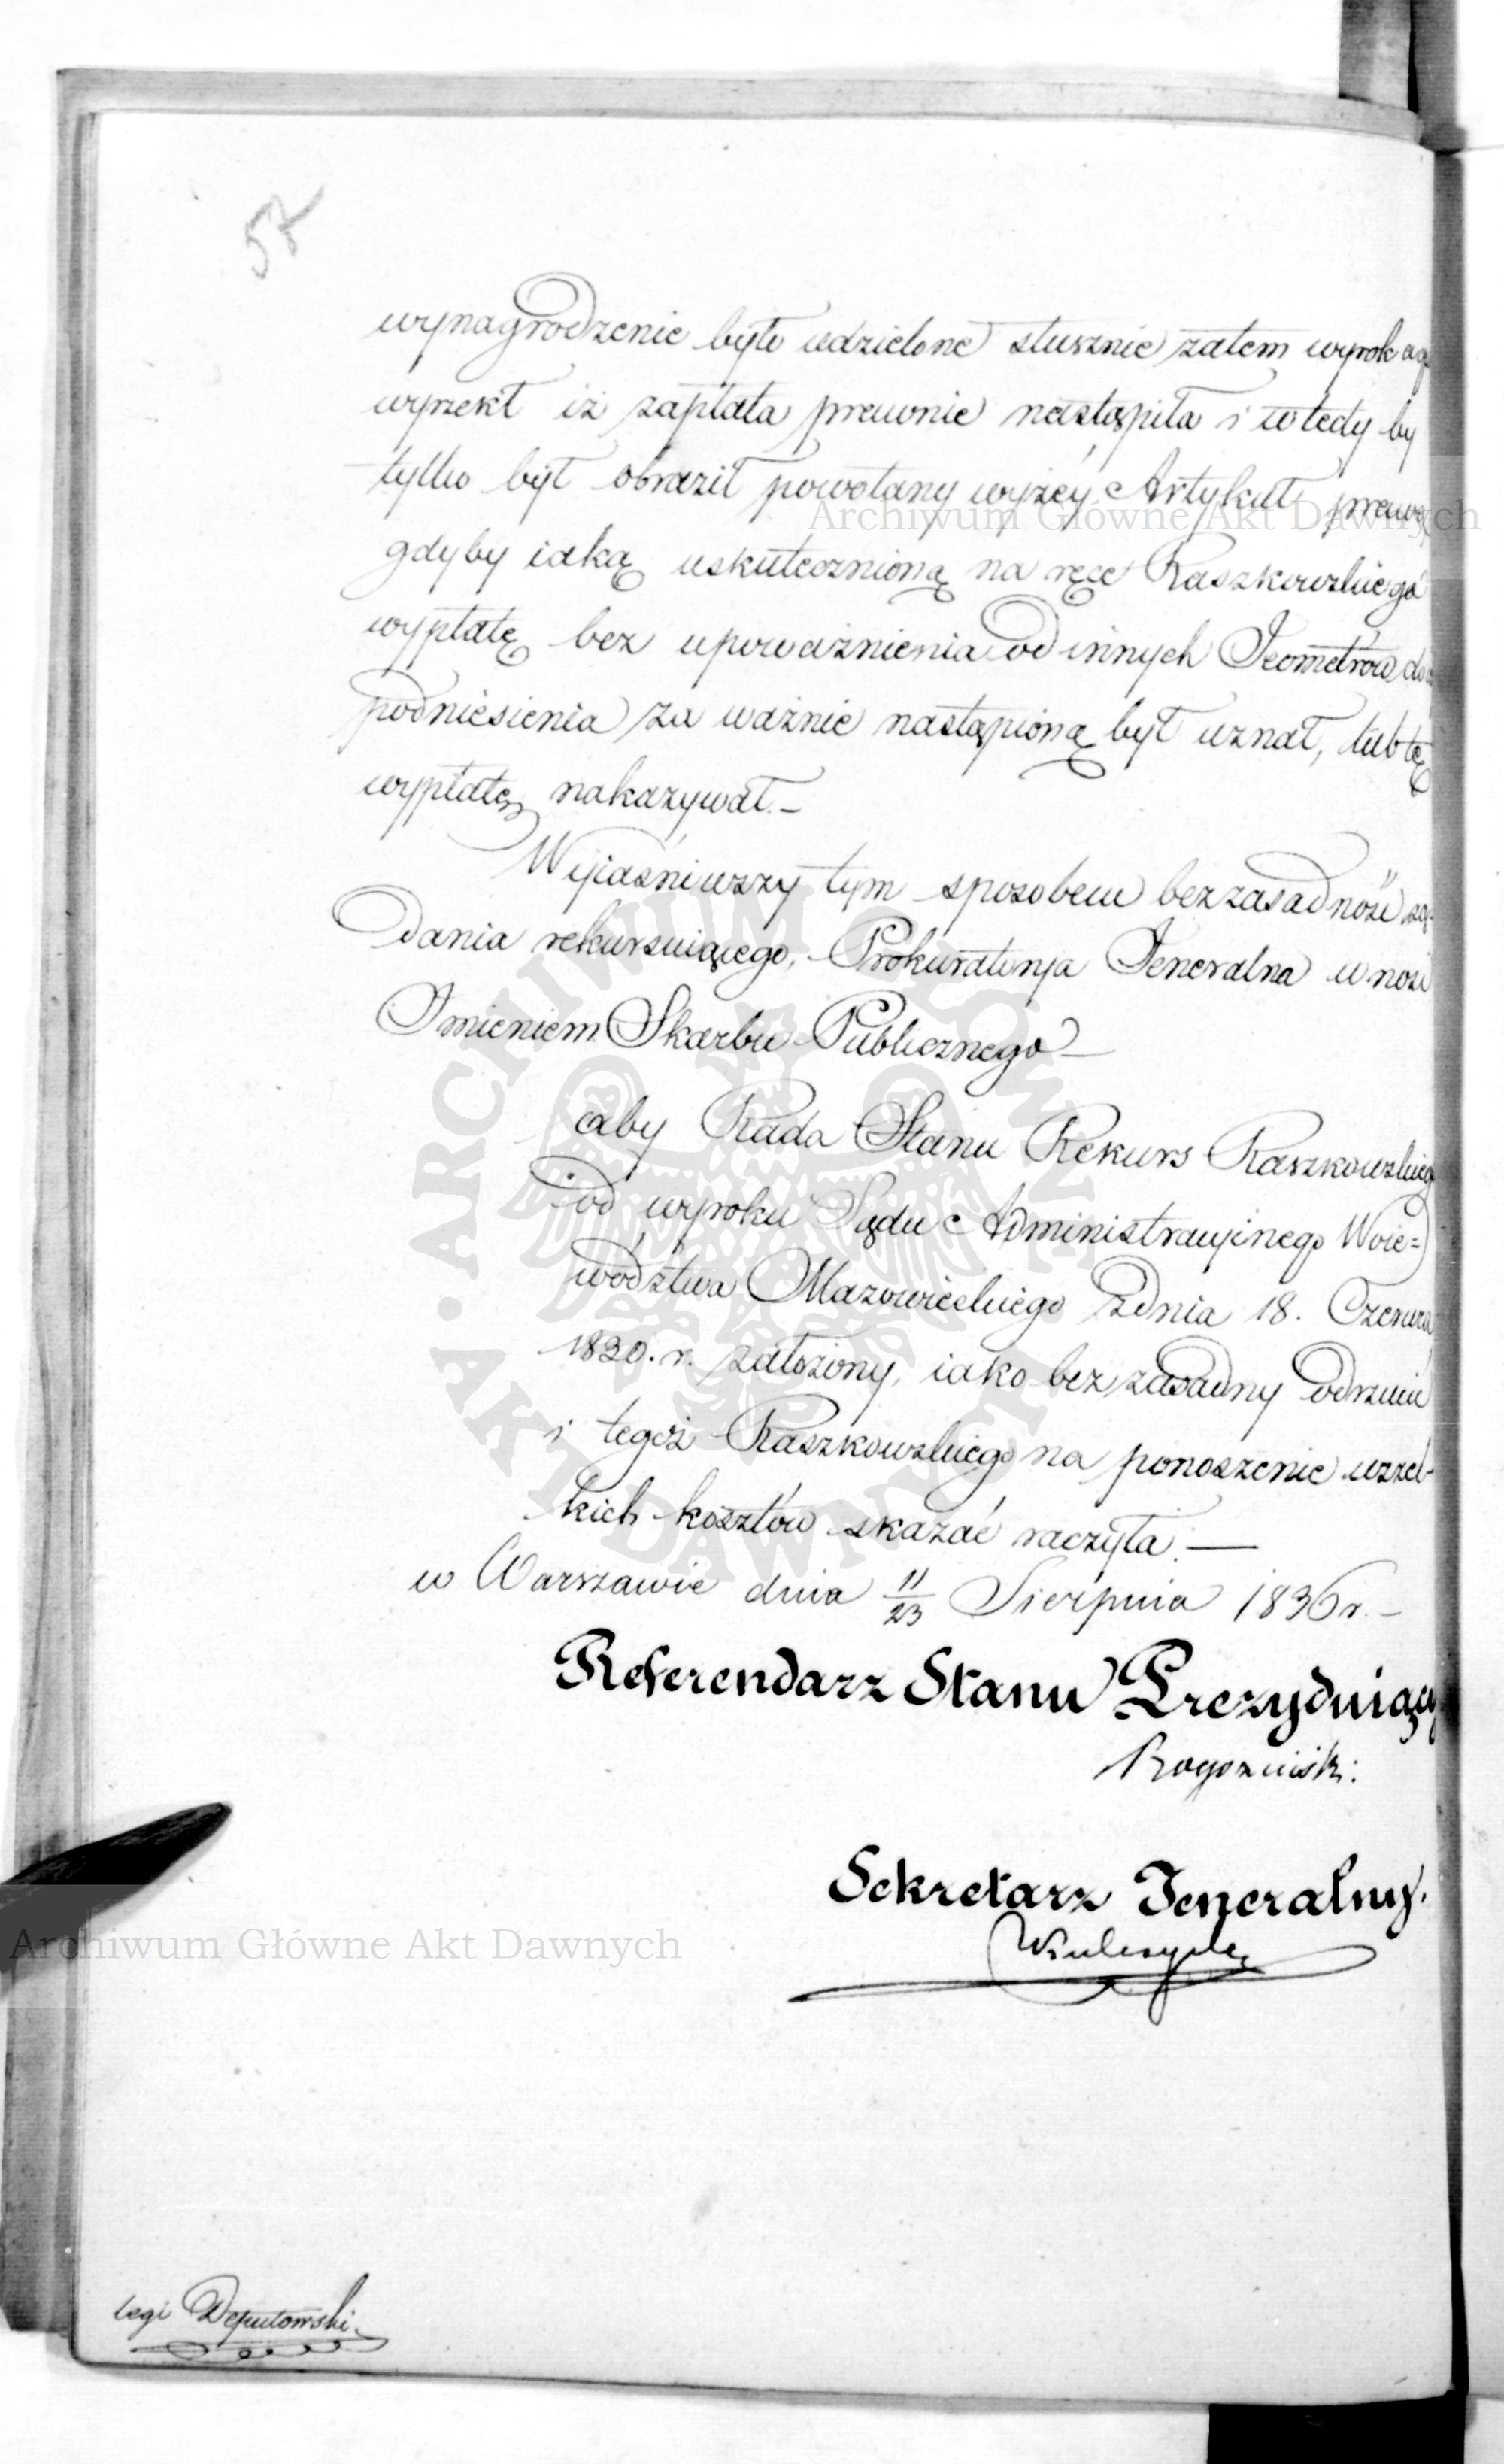 57
wynagrodzenie było udzielone słusznie zatem wyrok
wyrzekł iż zapłata prawnie nastąpiła i wtedy by
tylko był obraził powołany wyżey Artykuł prawa
gdyby iaką uskutecznioną na ręce Raszkowskiego
wypłatę bez upoważnienia od innych Jeometrów do
podniesienia za ważnie nastąpioną był uznał, lub tę
wypłatę nakazywał. –
Wyjaśniwszy tym sposobem bezzasadność żą-
dania rekursuiącego, Prokuratorya Jeneralna wnosi
Imieniem Skarbu Publicznego –
aby Rada Stanu Rekurs Raszkowskiego
od wyroku Sądu Administracyinego Woie=
wództwa Mazowieckiego z dnia 18. Czerwca
1830. r. założony, iako bezzasadny odrzucić
i tegoż Raszkowskiego na ponoszenie wszel-
kich kosztów skazać raczyła. —
w Warszawie dnia 11/23 Sierpnia 1836 r. –
Referendarz Stanu Prezyduiący
Rogoziński:
Sekretarz Jeneralny.
legi Deputowski.
Archiwum Główne Akt Dawnych
Archiwum Główne Akt Dawnych
ARCHIWUM GŁÓWNE • AKT DAWNYCH •